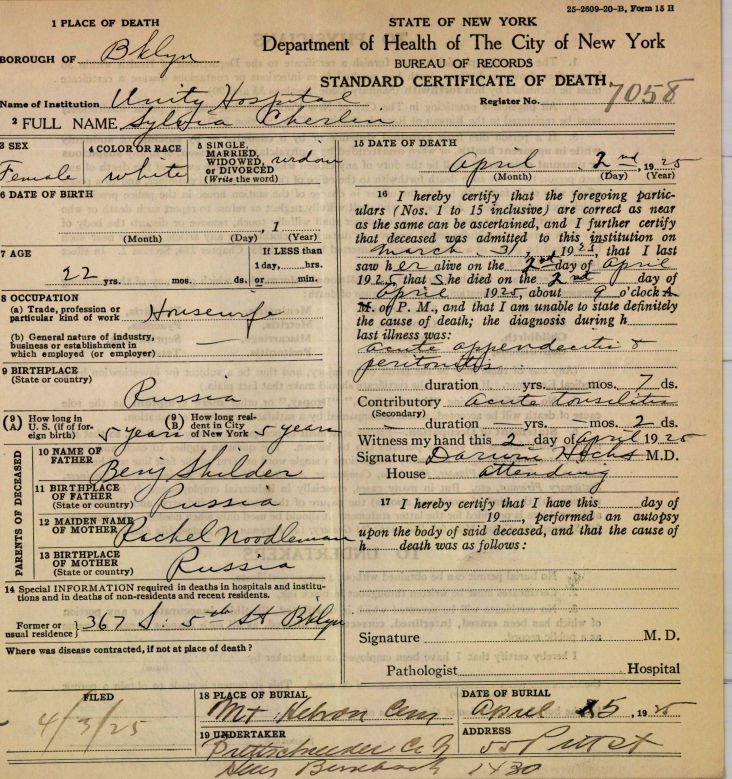 25-2609-20-B, Form 15 H
1 PLACE OF DEATH
STATE OF NEW YORK
Department of Health of The City of New York
BUREAU OF RECORDS
STANDARD CERTIFICATE OF DEATH
BOROUGH OF Bklyn
Name of Institution Unity Hospital
Register No. 7058
2 FULL NAME Sylvia Cherlin
3 SEX Female
4 COLOR OR RACE white
5 SINGLE, MARRIED, WIDOWED, or DIVORCED (Write the word) widow
6 DATE OF BIRTH
, 1
(Month) (Day) (Year)
7 AGE
22 yrs. mos. ds.
If LESS than
1 day, hrs.
or min.
8 OCCUPATION
(a) Trade, profession or
particular kind of work Housewife
(b) General nature of industry,
business or establishment in
which employed (or employer) —
9 BIRTHPLACE
(State or country) Russia
(9 A) How long in U. S. (if of foreign birth) 5 years
(9 B) How long resident in City of New York 5 years
PARENTS OF DECEASED
10 NAME OF
FATHER Benj Shilder
11 BIRTHPLACE
OF FATHER
(State or country) Russia
12 MAIDEN NAME
OF MOTHER Rachel Noodleman
13 BIRTHPLACE
OF MOTHER
(State or country) Russia
14 Special INFORMATION required in deaths in hospitals and institu-
tions and in deaths of non-residents and recent residents.
Former or
usual residence } 367 S. 5th St Bklyn
Where was disease contracted, if not at place of death ?
15 DATE OF DEATH
April 2nd, 1925
(Month) (Day) (Year)
16 I hereby certify that the foregoing partic-
ulars (Nos. 1 to 15 inclusive) are correct as near
as the same can be ascertained, and I further certify
that deceased was admitted to this institution on
March 31, 1925, that I last
saw her alive on the 2nd day of April
1925, that She died on the 2nd day of
April 1925, about 9 o'clock A.
M. or P. M., and that I am unable to state definitely
the cause of death; the diagnosis during h
last illness was:
acute appendecitis &
peritonitis
duration yrs. mos. 7 ds.
Contributory Acute tonsilitis
(Secondary)
— duration — yrs. — mos. 2 ds.
Witness my hand this 2 day of April 1925
Signature M.D.
House attending
17 I hereby certify that I have this day of
19 , performed an autopsy
upon the body of said deceased, and that the cause of
h death was as follows :
Signature M. D.
Pathologist Hospital
FILED
4/3/25
18 PLACE OF BURIAL
Mt Hebron Cem
DATE OF BURIAL
April 5, 1925
19 UNDERTAKER
ADDRESS
55 Pitt St
1430